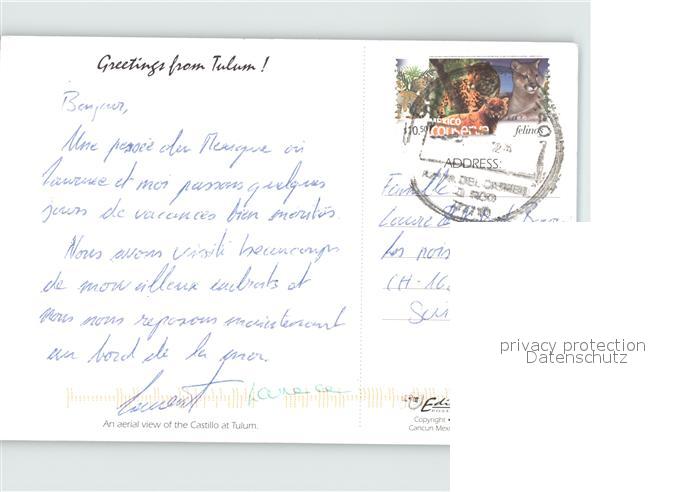 Greetings from Tulum !
Bonjour,
Une pensée du Mexique où
Laurence et moi passons quelques
jours de vacances bien mérités.
Nous avons visité beaucoups
de merveilleux endroits et
nous nous reposons maintenant
au bord de la mer.
Laurent Laurence
An aerial view of the Castillo at Tulum.
MEXICO
$10.50 conserva felinos
ADDRESS:
PLAYA DEL CARMEN
Famille
Laure
Les nois
CH-16
Sui
Edi
Copyright
Cancun Mexi
privacy protection
Datenschutz